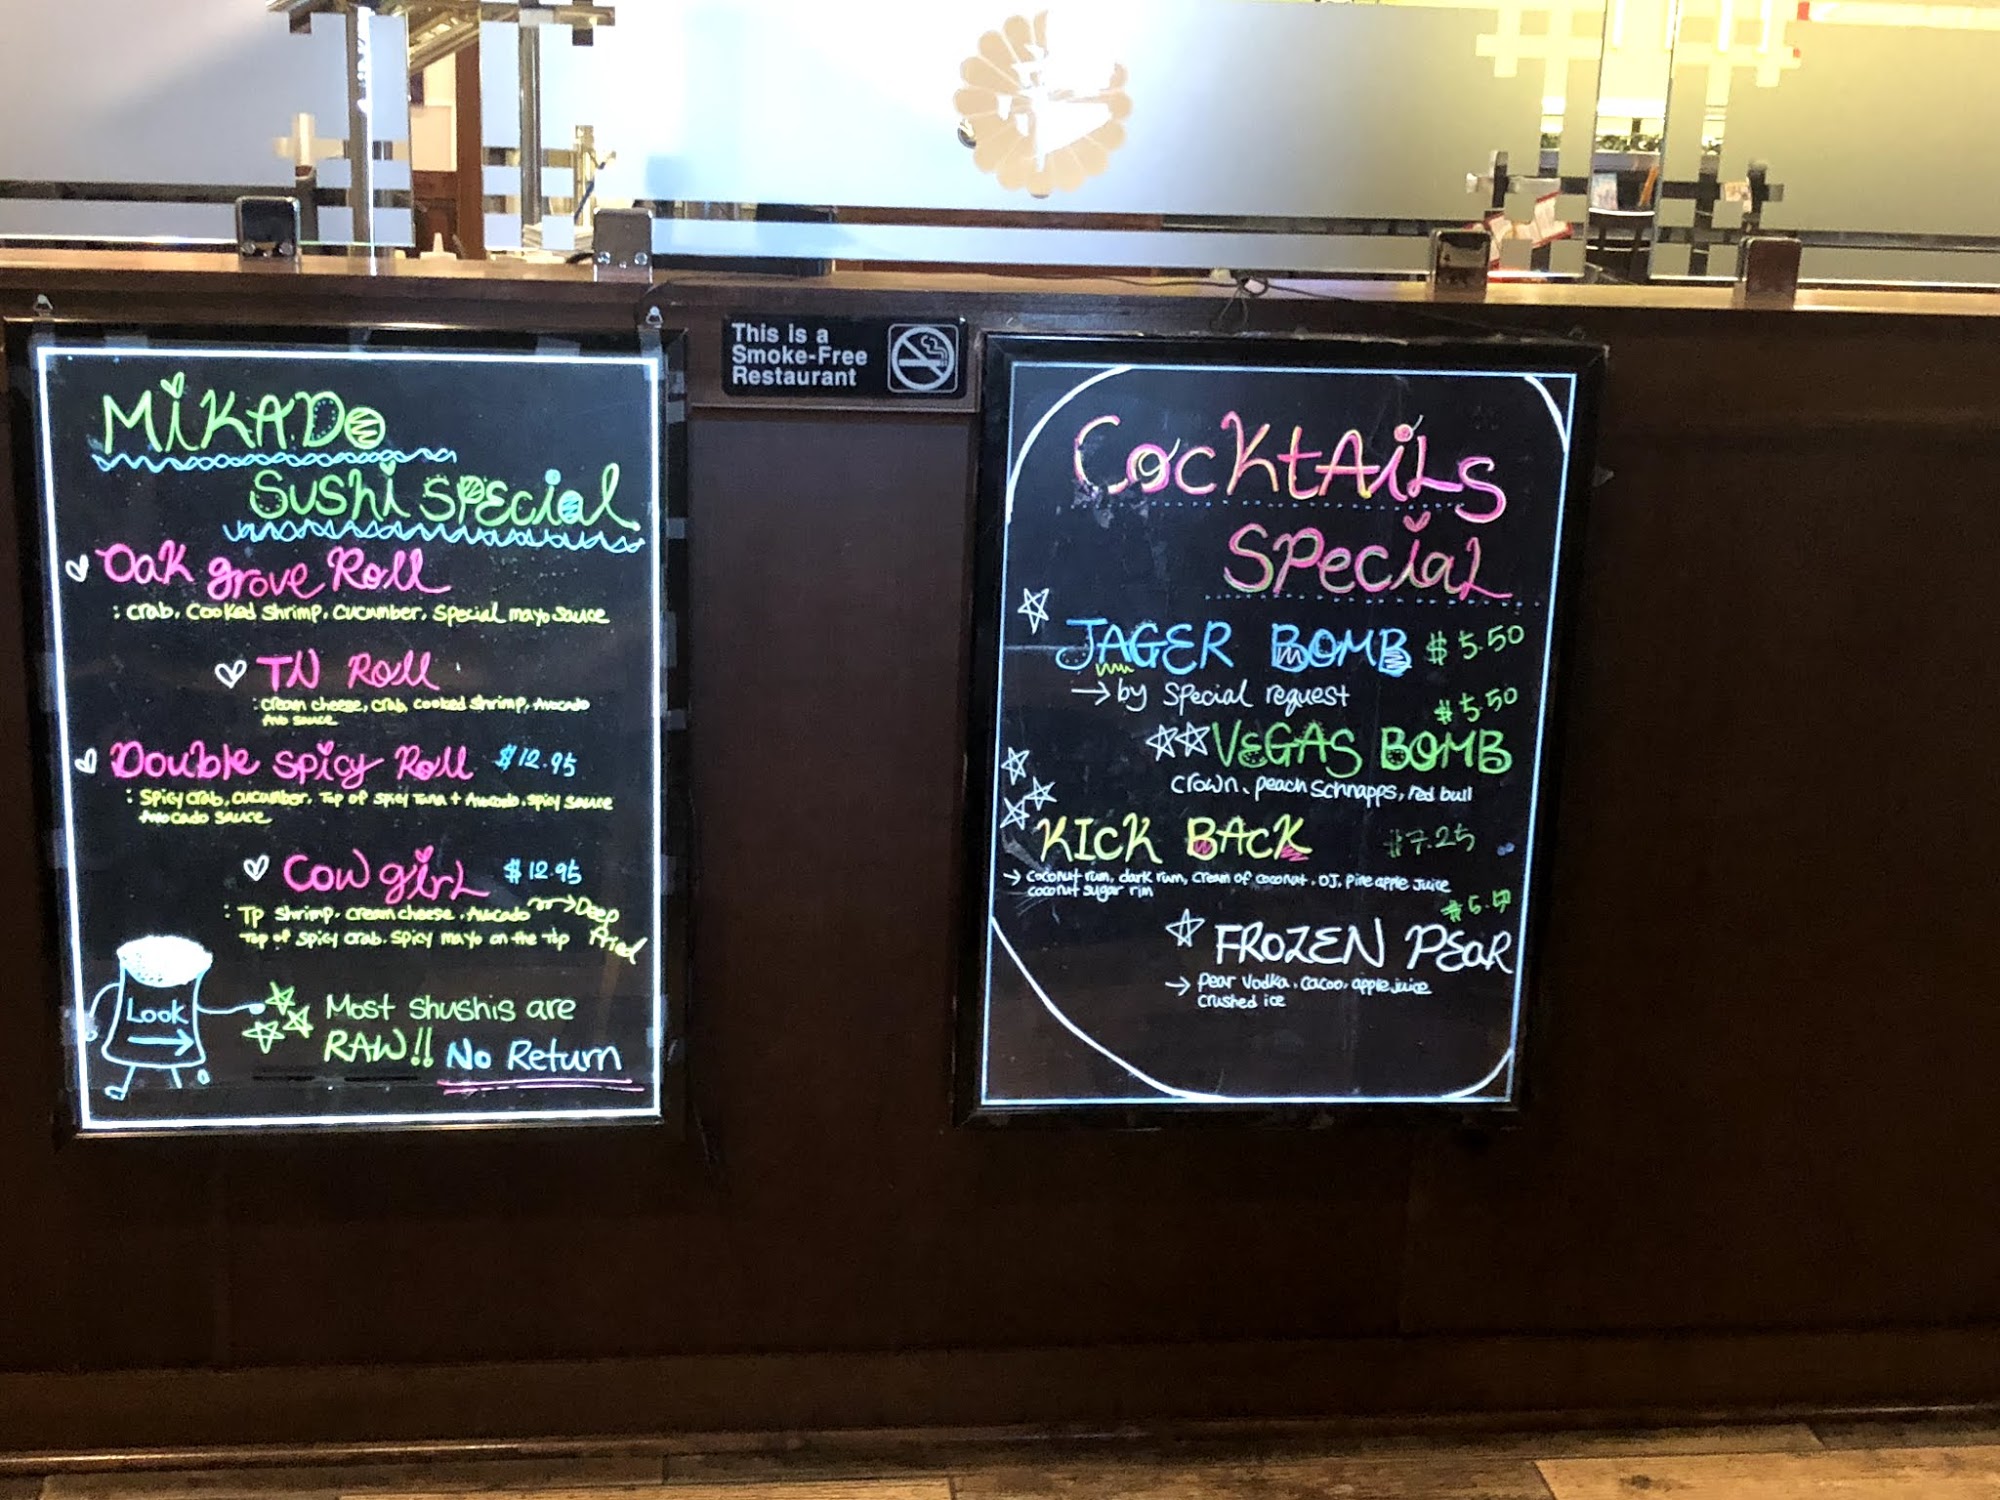 This is a
Smoke-Free
Restaurant
MiKADo
Sushi SPEcial
Oak grove Roll
: crab, cooked shrimp, cucumber, special mayo sauce
TN Roll
: cream cheese, crab, cooked shrimp, Avocado
Avo sauce
Double spicy Roll $12.95
: Spicy crab, cucumber, Top of spicy Tuna + Avocado, spicy sauce
Avocado sauce
Cow girL $12.95
: Tp shrimp, cream cheese, Avocado → Deep Fried
Top of spicy crab, spicy mayo on the Top
Look
Most shushis are
RAW!! No Return
CocktAiLs
SPeciaL
JAGER BOMB $5.50
→ by special request
$5.50
VEGAS BOMB
crown, peach schnapps, red bull
KICK BACK $7.25
→ coconut rum, dark rum, cream of coconut, OJ, pineapple Juice
coconut sugar rim
FROZEN PEaR
→ pear vodka, cacoo, apple juice
crushed ice